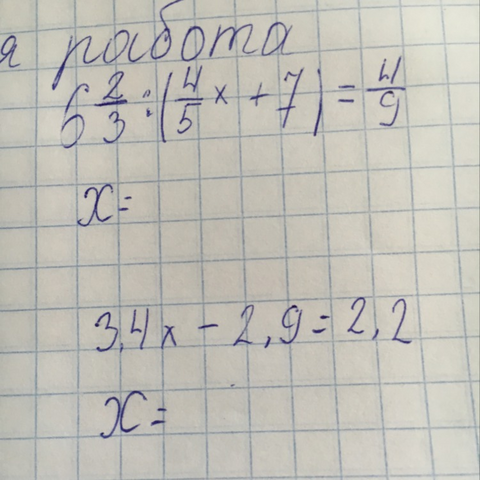 я работа
6 2/3 : (4/5 x + 7) = 4/9
x =
3,4x - 2,9 = 2,2
x =